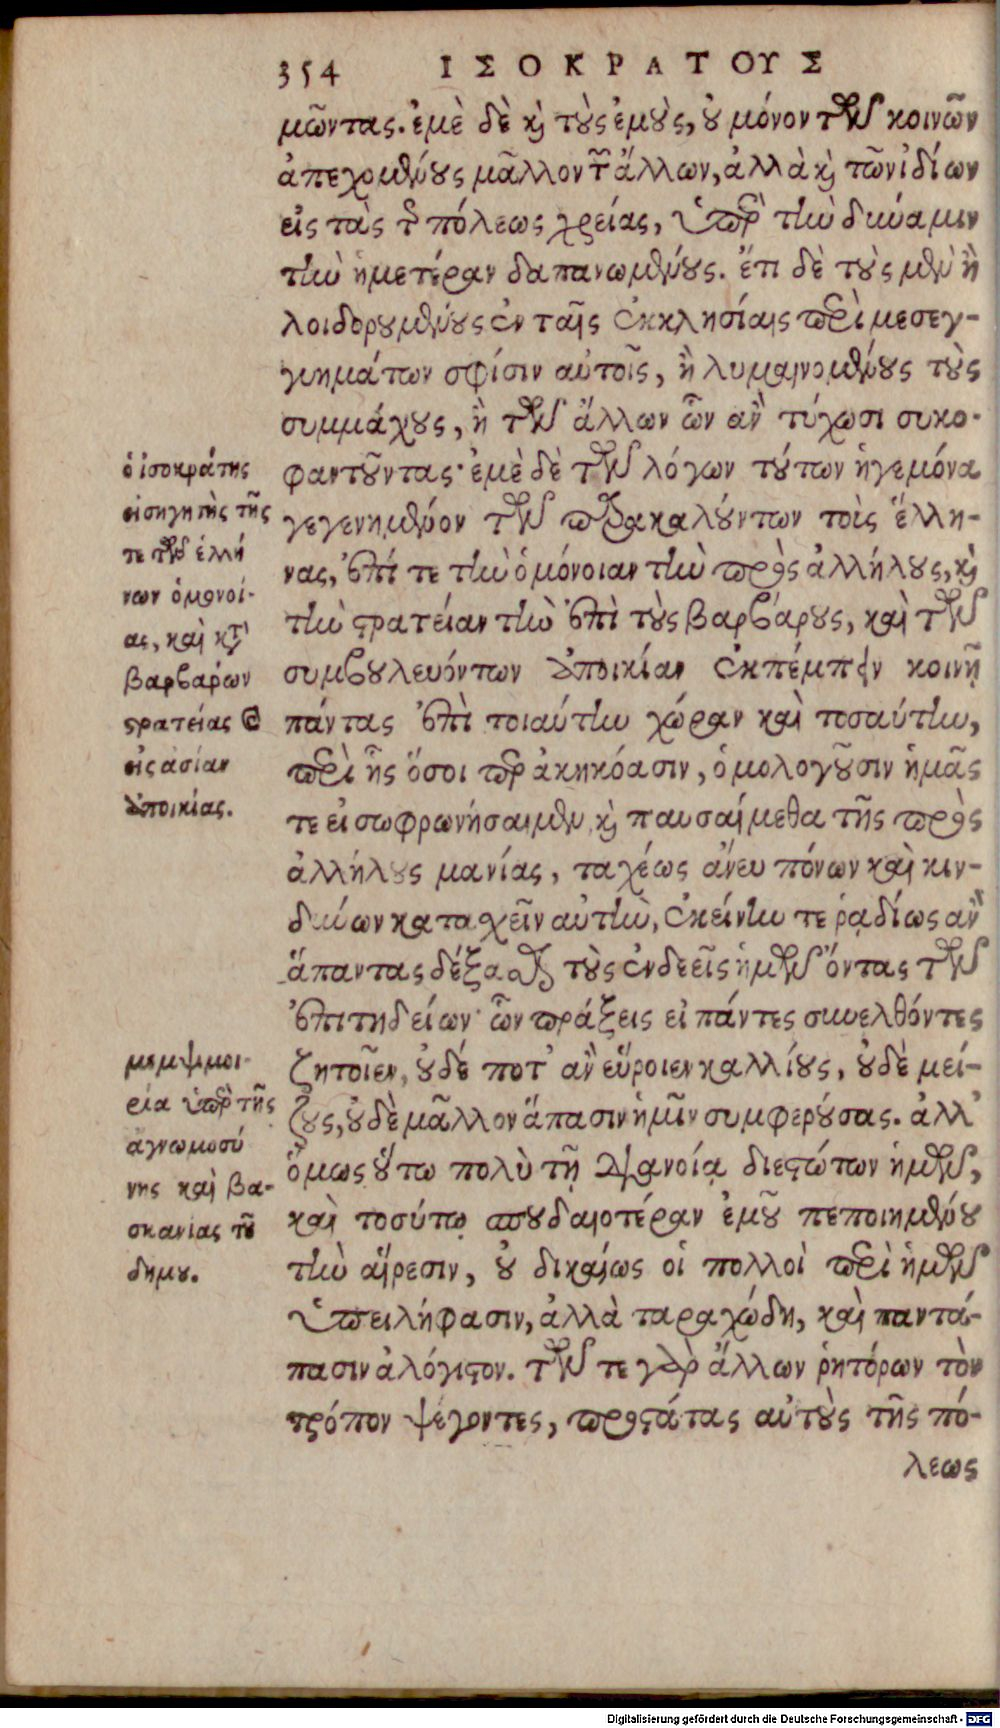 354 ΙΣΟΚΡΑΤΟΥΣ
μῶντας. ἐμὲ δὲ καὶ τοὺς ἐμοὺς, οὐ μόνον τῶν κοινῶν
ἀπεχομένους μᾶλλον τῶν ἄλλων, ἀλλὰ καὶ τῶν ἰδίων
εἰς τὰς τῆς πόλεως χρείας, ὑπὲρ τὴν δύναμιν
τὴν ἡμετέραν δαπανωμένους. ἔτι δὲ τοὺς μὲν ἢ
λοιδορουμένους ἐν ταῖς ἐκκλησίαις περὶ μεσεγ-
γυημάτων σφίσιν αὐτοῖς, ἢ λυμαινομένους τοὺς
συμμάχους, ἢ τῶν ἄλλων ὧν ἂν τύχωσι συκο-
φαντοῦντας· ἐμὲ δὲ τῶν λόγων τούτων ἡγεμόνα
γεγενημένον τῶν παρακαλούντων τοὺς ἕλλη-
νας, ἐπί τε τὴν ὁμόνοιαν τὴν πρὸς ἀλλήλους, καὶ
τὴν στρατείαν τὴν ἐπὶ τοὺς βαρβάρους, καὶ τῶν
συμβουλευόντων ἀποικίαν ἐκπέμπειν κοινῇ
πάντας ἐπὶ τοιαύτην χώραν καὶ τοσαύτην,
περὶ ἧς ὅσοι περ ἀκηκόασιν, ὁμολογοῦσιν ἡμᾶς
τε εἰ σωφρονήσαιμεν καὶ παυσαίμεθα τῆς πρὸς
ἀλλήλους μανίας, ταχέως ἄνευ πόνων καὶ κιν-
δύνων κατασχεῖν αὐτὴν, ἐκείνην τε ῥᾳδίως ἂν
ἅπαντας δέξασθαι τοὺς ἐνδεεῖς ἡμῶν ὄντας τῶν
ἐπιτηδείων· ὧν πράξεις εἰ πάντες συνελθόντες
ζητοῖεν, οὐδέ ποτ' ἂν εὕροιεν καλλίους, οὐδὲ μεί-
ζους, οὐδὲ μᾶλλον ἅπασιν ἡμῖν συμφερούσας. ἀλλ'
ὅμως οὕτω πολὺ τῇ διανοίᾳ διεστώτων ἡμῶν,
καὶ τοσούτῳ σπουδαιοτέραν ἐμοῦ πεποιημένου
τὴν αἵρεσιν, οὐ δικαίως οἱ πολλοὶ περὶ ἡμῶν
ὑπειλήφασιν, ἀλλὰ ταραχώδη, καὶ παντά-
πασιν ἀλόγιστον. τῶν τε γὰρ ἄλλων ῥητόρων τὸν
τρόπον ψέγοντες, προστάτας αὐτοὺς τῆς πό-
λεως
ὁ ἰσοκράτης
εἰσηγητὴς τῆς
τε τῶν ἑλλή
νων ὁμονοί-
ας, καὶ κατὰ
βαρβάρων
στρατείας
εἰς ἀσίαν
ἀποικίας.
μεμψιμοι-
ρία ὑπὲρ τῆς
ἀγνωμοσύ
νης καὶ βα-
σκανίας τοῦ
δήμου.
Digitalisierung gefördert durch die Deutsche Forschungsgemeinschaft - DFG